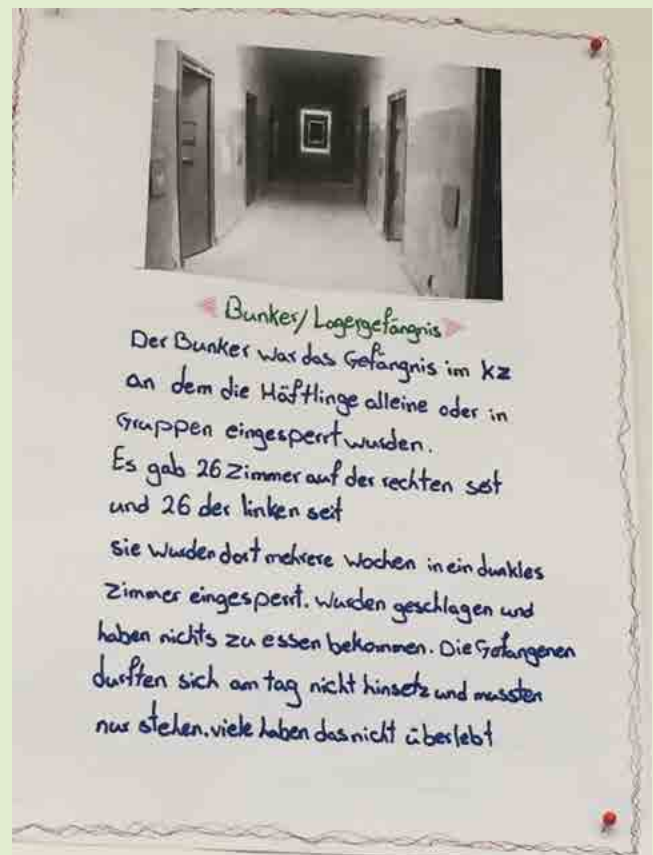 Bunker/Lagergefängnis
Der Bunker war das Gefängnis im KZ
an dem die Häftlinge alleine oder in
Gruppen eingesperrt wurden.
Es gab 26 Zimmer auf der rechten seit
und 26 der linken seit
sie wurden dort mehrere Wochen in ein dunkles
Zimmer eingesperrt. Wurden geschlagen und
haben nichts zu essen bekommen. Die Gefangenen
durften sich am tag nicht hinsetz und mussten
nur stehen. viele haben das nicht überlebt